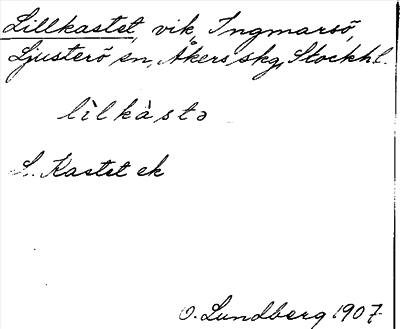 Lillkastet, vik, Ingmarsö,
Ljusterö sn, Åkers skg, Stockhl.
lìlkàstə
S. Kastet ek
O. Lundberg 1907